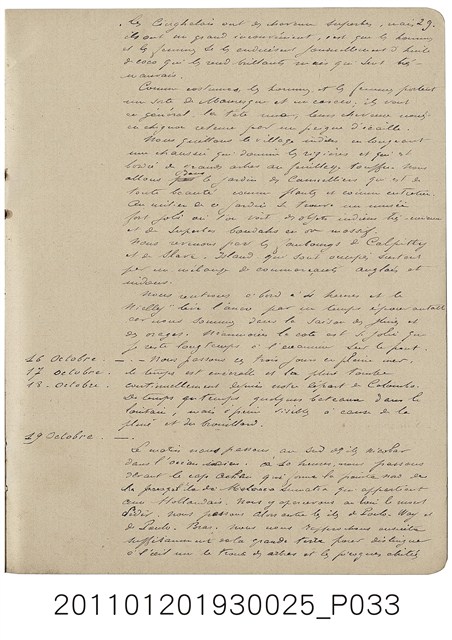 Les Cinghalais ont des cheveux superbes, mais 29.
ils ont un grand inconvénient, c'est que les hommes
et les femmes se les enduisent journellement d'huile
de coco qui les rend brillants mais qui sent très
mauvais.
Comme costumes, les hommes et les femmes portent
un et un ils vont
en général, la tête nue, leurs cheveux noués
en chignon retenu par un peigne d'écaille.
Nous quittons le village indien en longeant
une chaussée qui domine les rizières et qui est
bordée de grands arbres au feuillage touffu. Nous
allons dans le jardin des Cannelliers qui est de
toute beauté comme plante et comme entretien.
Au milieu de ce jardin se trouve un musée
fort joli où l'on voit des objets indiens très
et de superbes bouddhas en or massif.
Nous revenons par les faubourgs de
et de Slave-Island qui sont occupés surtout
par un mélange de commerçants anglais et
indiens.
Nous rentrons à bord à heures et le
lève l'ancre par un temps épouvantable
car nous sommes dans la saison des pluies et
des orages. Néanmoins la côte est si jolie que
je reste longtemps à l'examiner sur le pont.
16 Octobre. — Nous passons ces trois jours en pleine mer.
17 Octobre. le temps est couvert et la pluie tombe
18 Octobre. continuellement depuis notre départ de Colombo.
De temps en temps quelques bateaux dans le
lointain, mais à peine visible à cause de la
pluie et du brouillard.
19 Octobre. —
Ce matin nous passons, au sud des îles Nicobar
dans l'océan indien. à 10 heures, nous passons
devant le cap qui forme la pointe nord de
la de Sumatra qui appartient
aux Hollandais. Nous apercevons au loin le mont
nous passons alors entre les îles de Poulo Way et
de Poulo Bras. Nous nous rapprochons ensuite
suffisamment de la grande terre pour distinguer
à l'œil nu le tronc des arbres et les pirogues abritées
201101201930025_P033